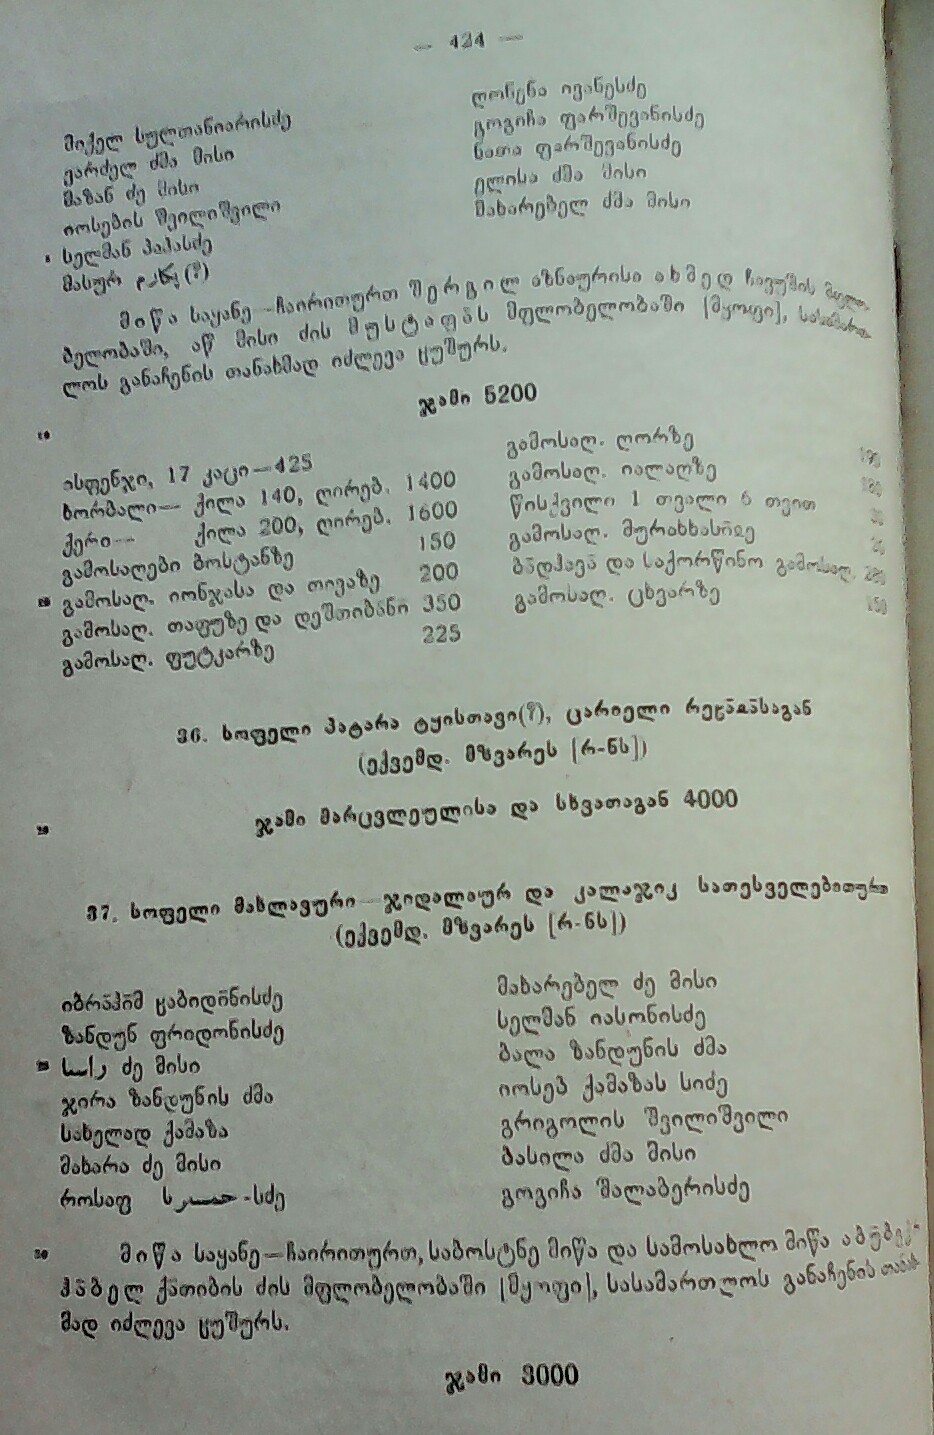 — 424 —
მიქელ სულთანიარისძე
ვარძელ ძმა მისი
მაზან ძე მისი
იოსების შვილიშვილი
სელმან პაპასძე
მასურ (?)
ღონენა ივანესძე
გოგიჩა ფარშევანისძე
ნათა ფარშევანისძე
ელისა ძმა მისი
მახარებელ ძმა მისი
მიწა საყანე—ჩაირითურთ შერგილ აზნაურისა ახმედ ჩავუშის მფლო-
ბელობაში, აწ მისი ძის მუსტაფას მფლობელობაში [მყოფი], სასამართ-
ლოს განაჩენის თანახმად იძლევა ჲუშურს.
ჯამი 5200
10
ისფენჯი, 17 კაცი—425
ხორბალი— ქილა 140, ღირებ. 1400
ქერი— ქილა 200, ღირებ. 1600
გამოსაღები ბოსტანზე 150
გამოსაღ. იონჯასა და თივაზე 200
გამოსაღ. თაფუზე და დეშთიბანი 350
გამოსაღ. ფუტკარზე 225
გამოსაღ. ღორზე
გამოსაღ. იალაღზე
წისქვილი 1 თვალი 6 თვით
გამოსაღ.
ბადჰავა და საქორწინო გამოსაღ.
გამოსაღ. ცხვარზე 150
36. სოფელი პატარა ტყისთავი(?), ცარიელი რეჲასაგან
(ექვემდ. მზვარეს [რ-ნს])
20
ჯამი მარცვლეულისა და სხვათაგან 4000
37. სოფელი მახლავური—ჯიდალაურ და კალაჯიკ სათესველებითურთ
(ექვემდ. მზვარეს [რ-ნს])
იბრაჰიმ ჲაბიდინისძე
ზანდუნ ფრიდონისძე
ძე მისი
ჯირა ზანდუნის ძმა
სახელად ქამაზა
მახარა ძე მისი
როსაფ -სძე
მახარებელ ძე მისი
სელმან იასონისძე
ბალა ზანდუნის ძმა
იოსებ ქამაზას სიძე
გრიგოლის შვილიშვილი
ბასილა ძმა მისი
გოგიჩა შალაბერისძე
30
მიწა საყანე—ჩაირითურთ, საბოსტნე მიწა და სამოსახლო მიწა
ქათიბის ძის მფლობელობაში [მყოფი], სასამართლოს განაჩენის თანახ-
მად იძლევა ჲუშურს.
ჯამი 3000